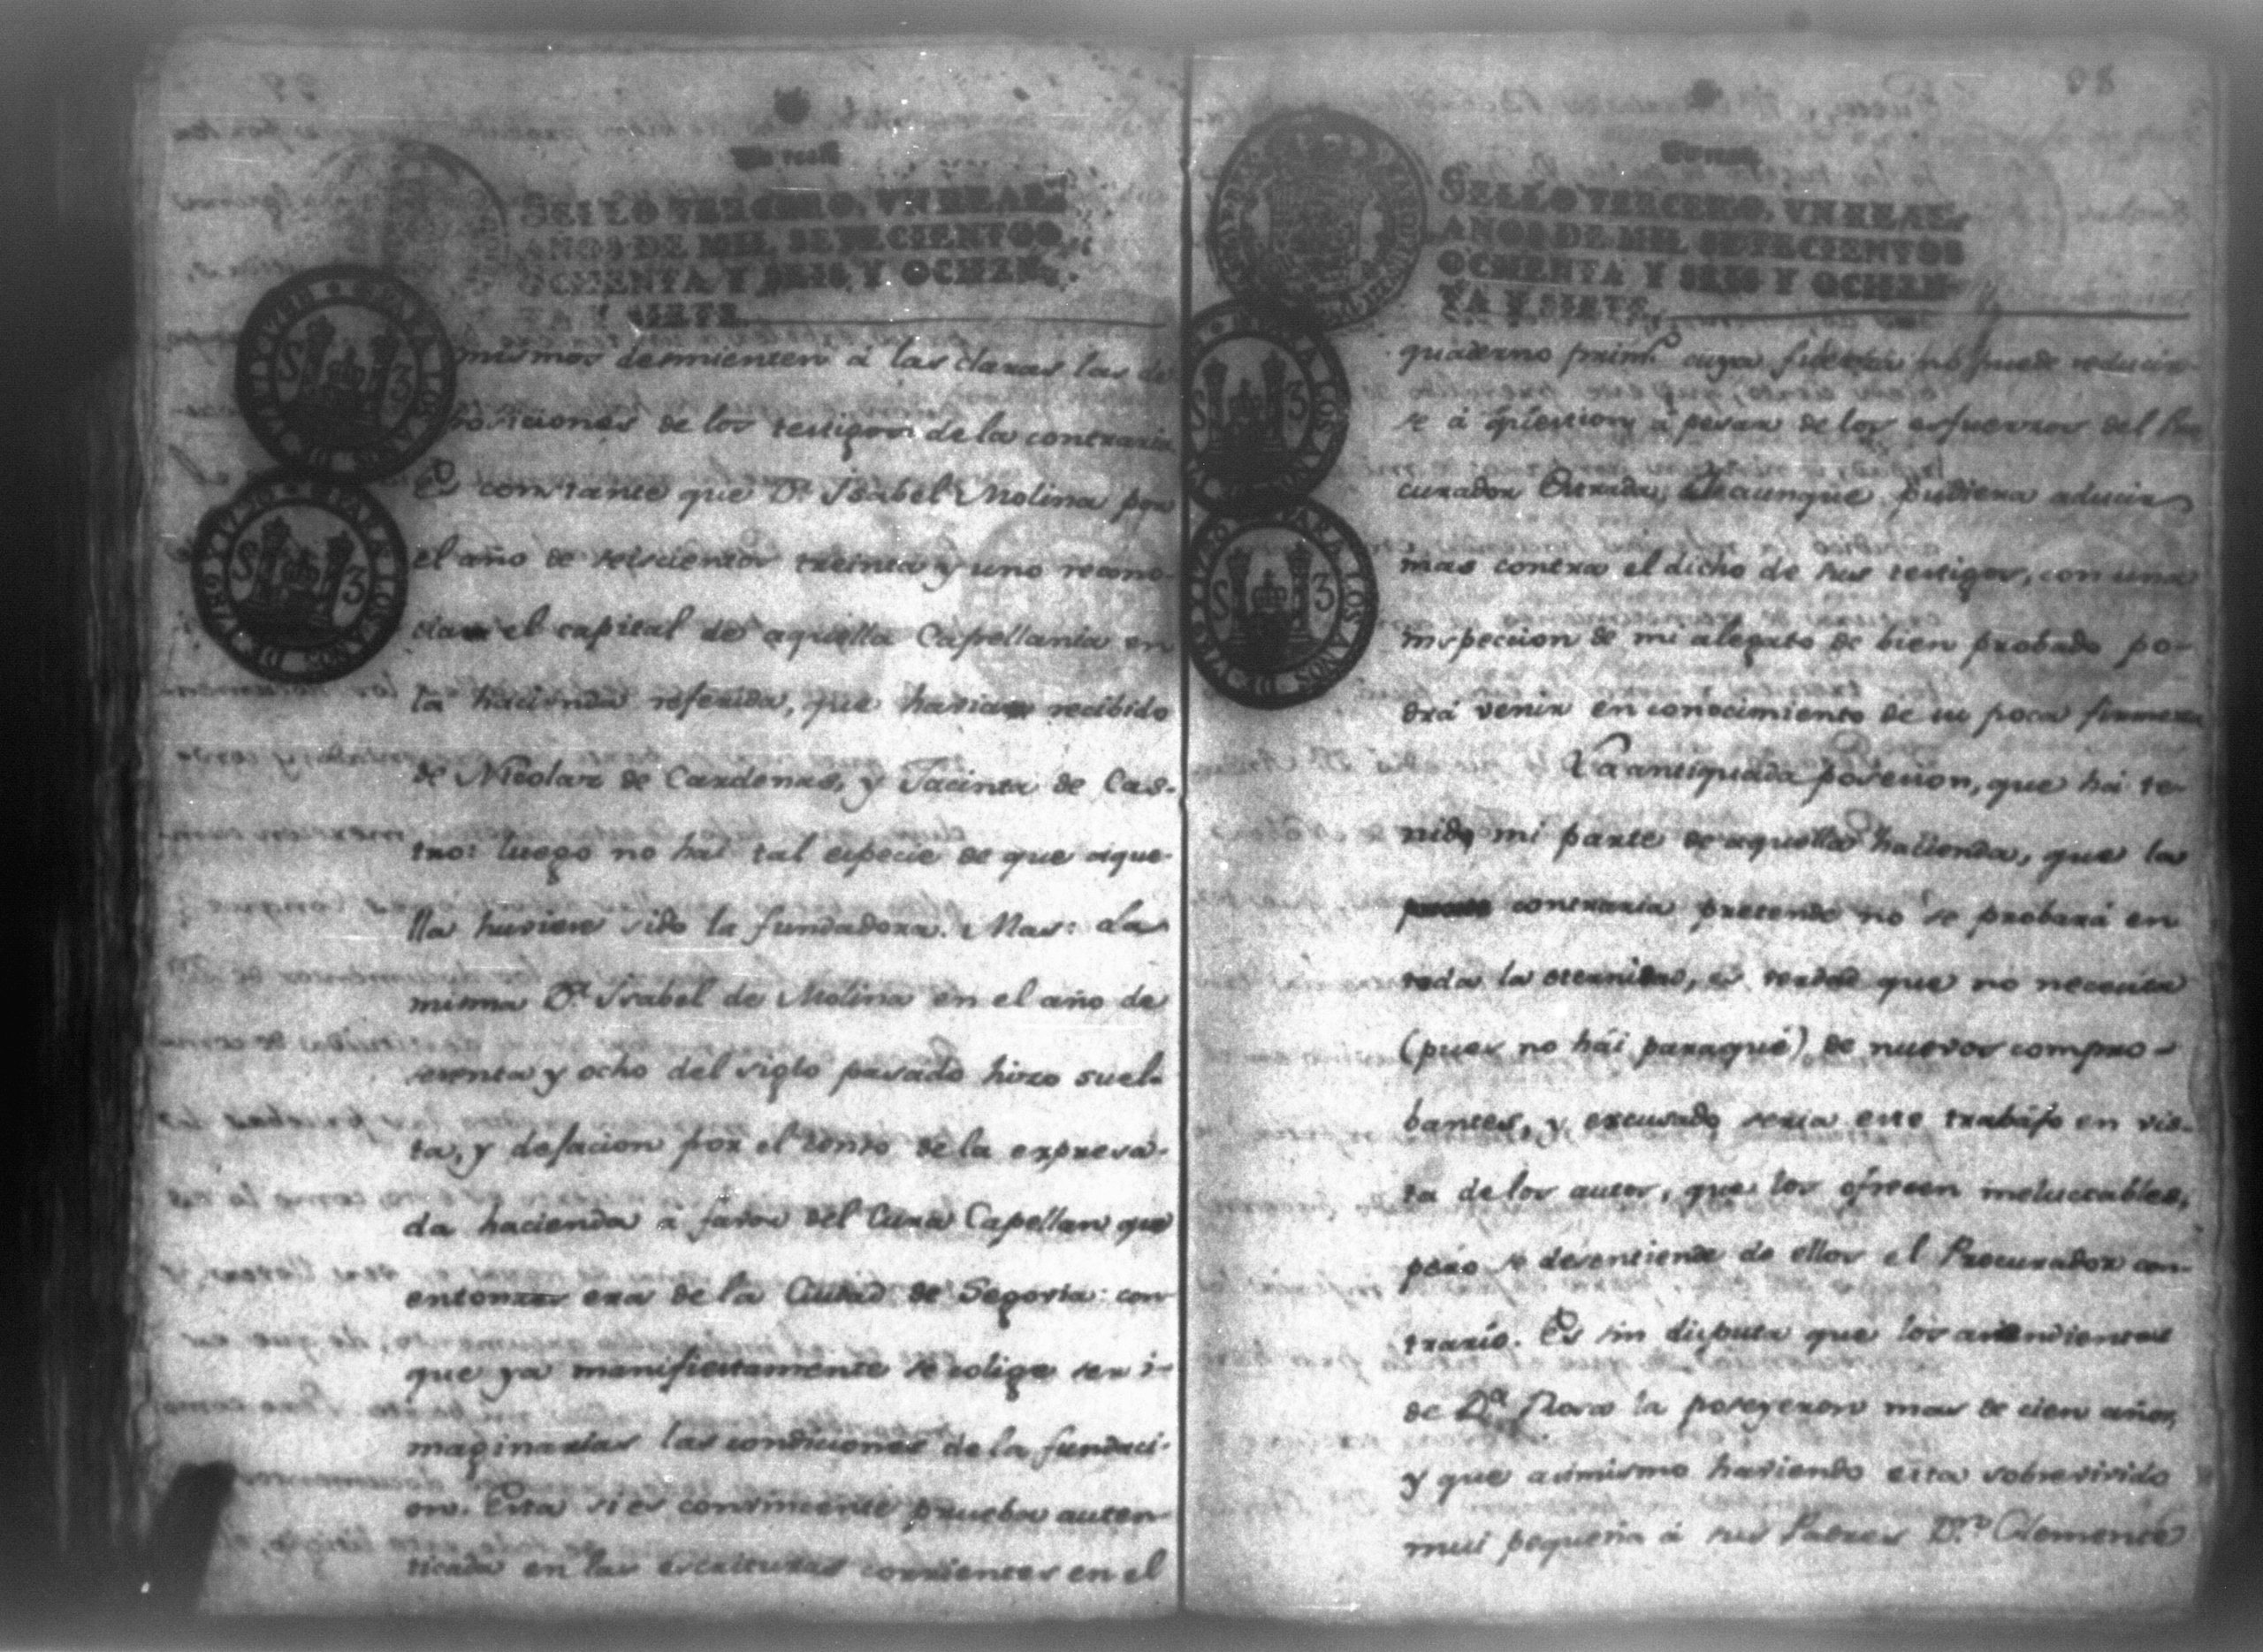 Un real
SELLO TERCERO, UN REAL
AÑOS DE MIL SETECIENTOS
OCHENTA Y SEIS, Y OCHEN-
TA Y SIETE
mismos desmienten á las claras las de
posiciones de los testigos de la contraria
Es constante que Dª Isabel Molina por
el año de seiscientos treinta y uno recono-
cia el capital de aquella Capellania en
la hacienda referida, que havia recibido
de Nicolas de Cardenas, y Jacinta de Cas-
tro: luego no hai tal especie de que aque-
lla huviese sido la fundadora. Mas: La
misma Dª Isabel de Molina en el año de
sesenta y ocho del siglo pasado hizo suel-
ta, y dejacion por el censo de la expresa-
da hacienda á favor del Cura Capellan que
entonzes era de la Ciudad de Segovia: con
que ya manifiestamente se colige ser i-
maginarias las condiciones de la fundaci-
on. Esta si es convincente prueba auten-
ticada en las escrituras corrientes en el
PARA LOS AÑOS DE
S 3
PARA LOS AÑOS DE
S 3
98
Un real
SELLO TERCERO, UN REAL
AÑOS DE MIL SETECIENTOS
OCHENTA Y SEIS Y OCHEN-
TA Y SIETE
quaderno prim.º cuya fuerza no puede reducir-
se á question á pesar de los esfuerzos del Pro
curador Estrada, que aunque pudiera aducir
mas contra el dicho de sus testigos, con una
inspeccion de mi alegato de bien probado po-
drá venir en conocimiento de su poca firmeza
La antiquada posesion, que há te-
nido mi parte de aquella hacienda, que la
contraria pretende no se probará en
toda la eternidad, es verdad que no necesita
(pues no hái paraqué) de nuevos compro-
bantes, y excusado seria este trabajo en vis-
ta de los autos, que los ofrecen ineluctables,
pero se desentiende de ellos el Procurador con-
trario. Es sin disputa que los ascendientes
de Dª Rosa la poseyeron mas de cien años,
y que asimismo haviendo esta sobrevivido
mui pequeña á sus Padres D.º Clemente
PARA LOS AÑOS DE
S 3
PARA LOS AÑOS DE
S 3